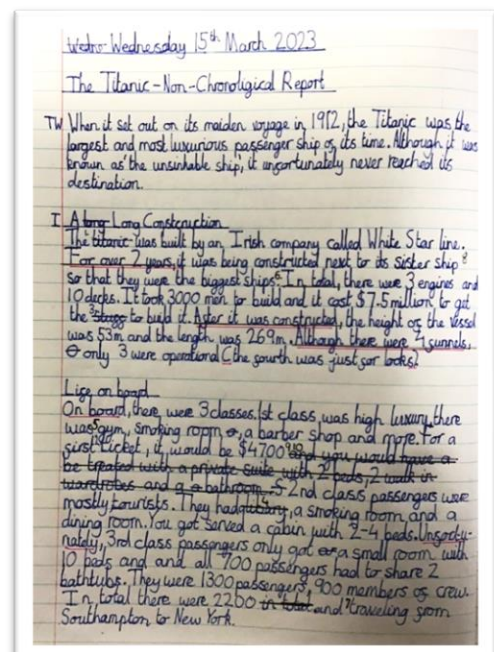 Wedns-Wednesday 15th March 2023
The Titanic-Non-Chronoligical Report
TW When it set out on its maiden voyage in 1912, the Titanic was the
largest and most luxurious passenger ship of its time. Although it was
known as 'the unsinkable ship', it unfortunately never reached its
destination.
I A long Long Construction
The titanic was built by an Irish company called White Star line.
For over 2 years, it was being constructed next to its sister ship
so that they were the biggest ships. In total, there were 3 engines and
10 decks. It took 3000 men to build and it cost $7.5 million to get
the to build it. After it was constructed, the height of the vessel
was 53m and the length was 269m. Although there were 4 funnels,
only 3 were operational (the fourth was just for looks)
Life on board
On board, there were 3 classes. 1st class was high luxury, there
was gym, smoking room, a barber shop and more. For a
first ticket, it would be $4700 and you would have a
be treated with a private suite with 2 beds, 2 walk in
wardrobes and a bathroom. 2nd class passengers were
mostly tourists. They had , a smoking room and a
dining room. You got served a cabin with 2-4 beds. Unfortu-
nately, 3rd class passengers only got a small room with
10 beds and and all 700 passengers had to share 2
bathtubs. They were 1300 passengers, 900 members of crew.
In total there were 2200 in total and traveling from
Southampton to New York.